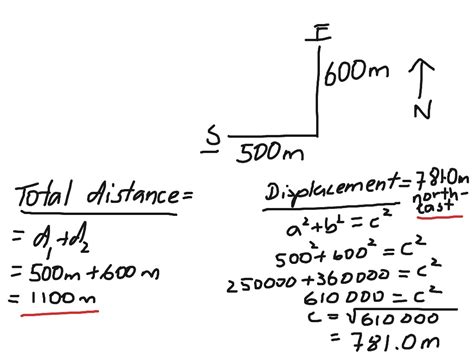 F
600m
N
S
500m
Total distance=
= d₁+d₂
= 500m+600m
= 1100m
Displacement=781.0m
north-
east
a²+b²=c²
500²+600²=c²
250000+360000=c²
610000=c²
c=√610000
=781.0m